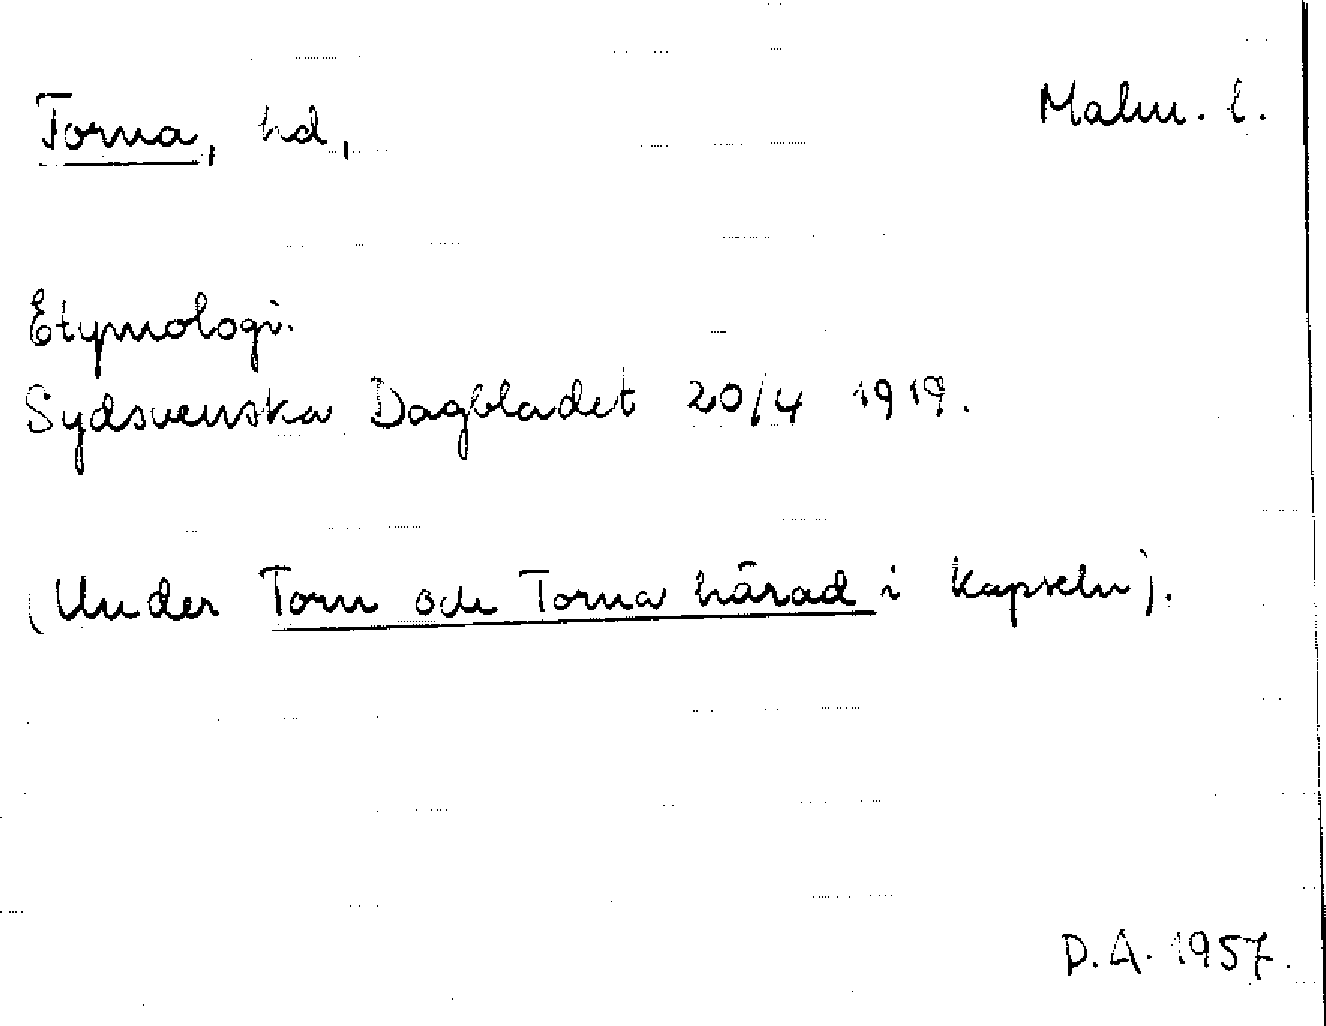 Torna, hd, Malm. l.
Etymologi.
Sydsvenska Dagbladet 20/4 1919.
(Under Torn och Torna härad i kapseln).
D.A. 1957.